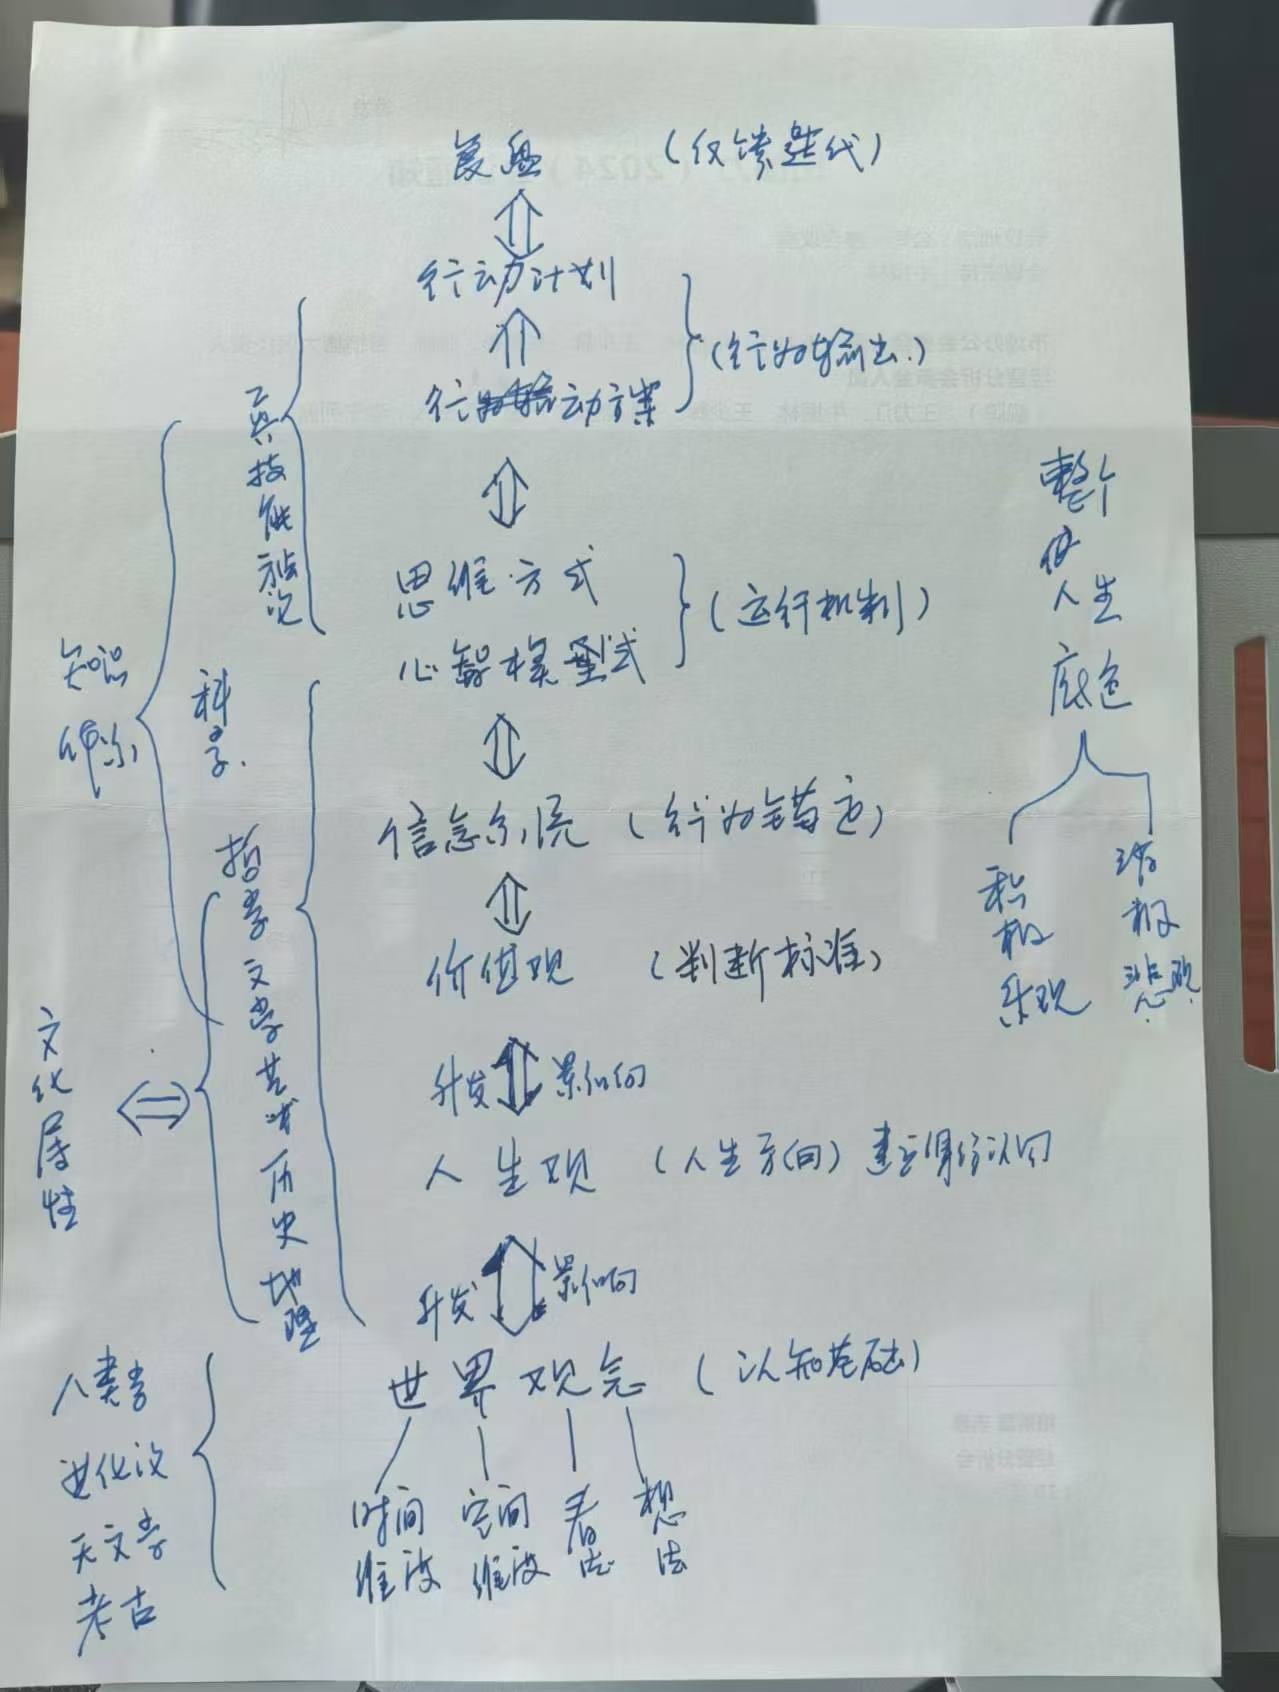 复盘 (反馈迭代)
行动计划
行动方案
(行为输出)
思维方式
心智模式
(运行机制)
信念系统 (行为锚定)
价值观 (判断标准)
升发 影响
人生观 (人生方向) 建立身份认同
升发 影响
世界观念 (认知基础)
时间维度
空间维度
看法
想法
工具技能
科学
哲学文学艺术历史地理
知识体系
文化属性
人类学
进化论
天文学
考古
整个
人生
底色
积极乐观
消极悲观
(2024)